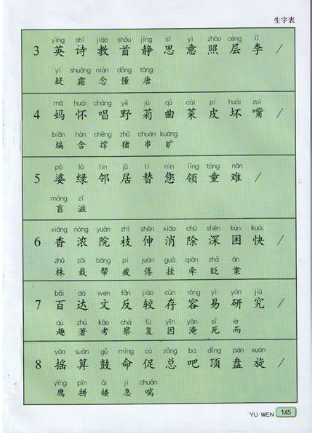 生字表
yīng shī jiāo shǒu jìng sī yì zhào céng lǐ
3 英 诗 教 首 静 思 意 照 层 李 /
yí shuāng niàn dǒng táng
疑 霜 念 懂 唐
mā huái chàng yě jú qǔ cài pí huài zuǐ
4 妈 怀 唱 野 菊 曲 菜 皮 坏 嘴 /
biān hán chēng zhū chuàn kuàng
编 含 撑 猪 串 旷
pó lǜ lín jū tì nín lǐng tóng nán
5 婆 绿 邻 居 替 您 领 童 难 /
máng zī
盲 滋
xiāng nóng yuàn zhī shēn xiāo chú shēn kùn kuài
6 香 浓 院 枝 伸 消 除 深 困 快 /
zhū zāi bāng pí juàn guà qiān zhǎ àn
株 栽 帮 疲 倦 挂 牵 眨 案
bǎi dá wén fǎn jiào cún róng yì yán jiū
7 百 达 文 反 较 存 容 易 研 究 /
qù zhù kǎo chá fù yīn yān sǐ ér
趣 著 考 察 复 因 淹 死 而
yáo suàn gǔ mìng cù zǒng ba dǐng pán xuán
8 摇 算 鼓 命 促 总 吧 顶 盘 旋 /
yīng pīn ǎi jí chuǎn
鹰 拼 矮 急 喘
YU WEN 145